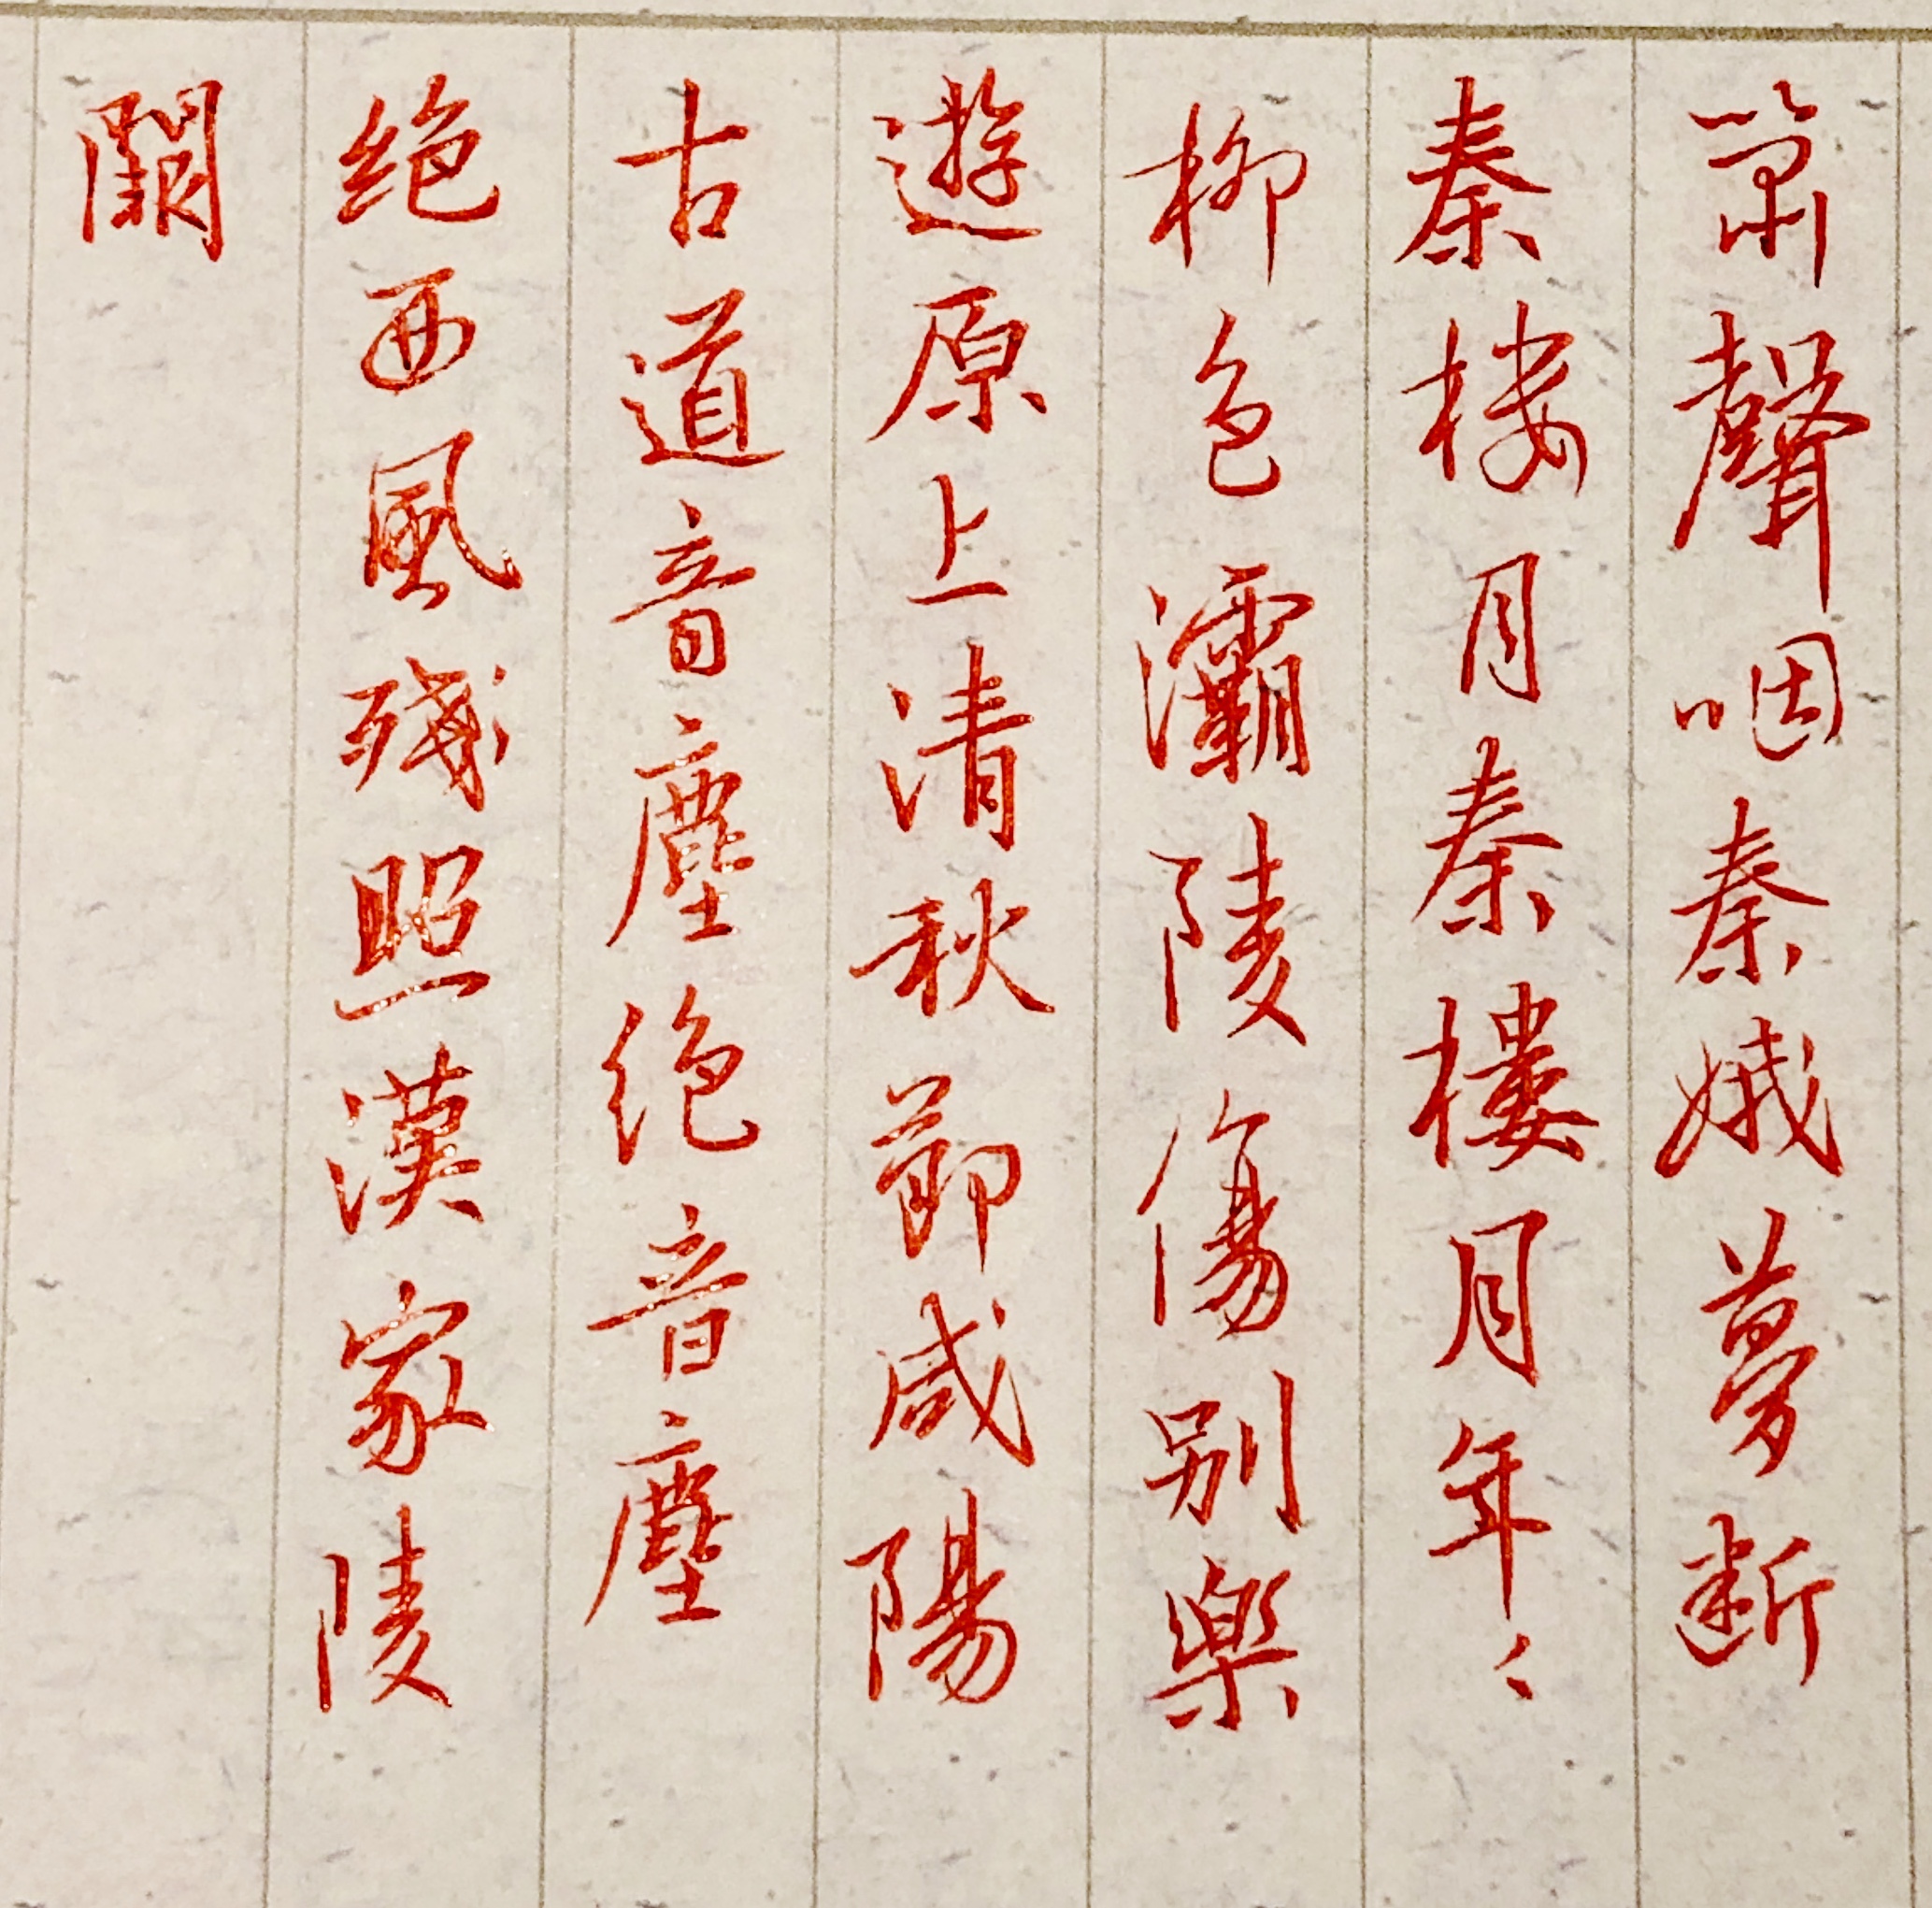 簫聲咽秦娥夢断
秦楼月秦樓月年〻
柳色灞陵傷别樂
遊原上清秋節咸陽
古道音塵绝音塵
绝西風殘照漢家陵
闕